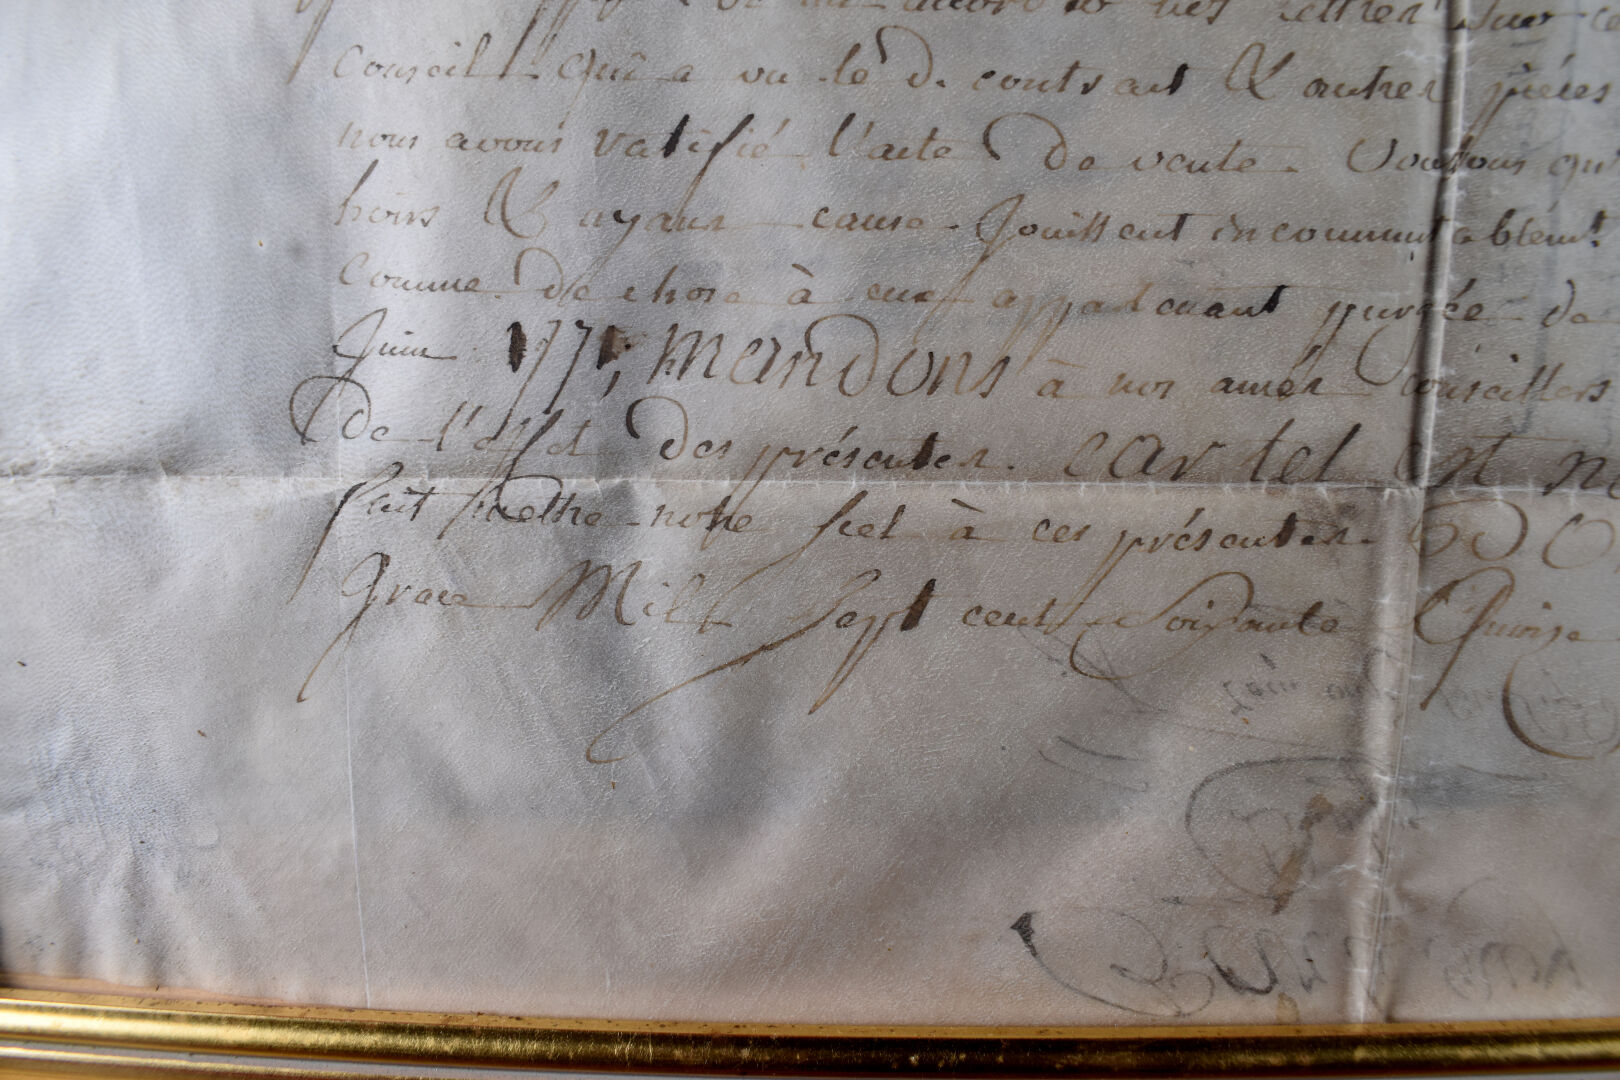 accorder nos lettres sur ce
Conseil qui a vu le d. contrat & autres pièces
nous avons ratifié l'acte de vente. Voulons qu'
hoirs & ayans cause jouissent incommutablemt.
Comme de chose à eux appartenant purgée de
Juin 1771, Mandons à nos amés conseillers
De l'effet des présentes. Car tel est n
fait mettre notre scel à ces présentes. DO
Grace Mil Sept cent Soixante Quinze